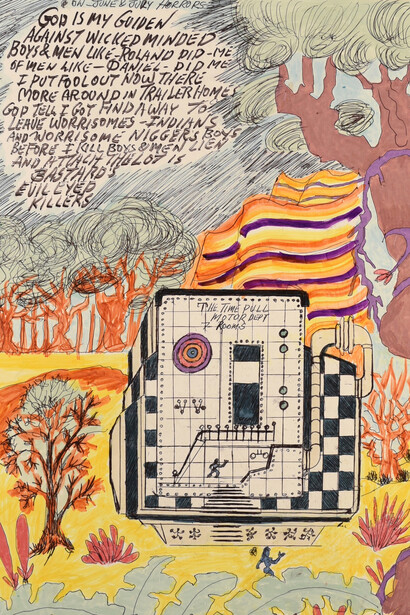 ON JUNE & JULY HORRORS
GOD IS MY GUIDEN
AGAINST WICKED MINDED
BOYS & MEN LIKE ROLAND DID-ME
OF MEN LIKE - DANIEL - DID ME
I PUT FOOL OUT NOW THERE
MORE AROUND IN TRAILER HOMES
GOD TELL I GOT FIND A WAY TO
LEAVE WORRISOMES - INDIANS
AND WORRISOME NIGGERS BOYS
BEFORE I KILL BOYS & MEN LIEN
AND A THE LOT IS
BASTARD'S
EVIL EYED
KILLERS
THE TIME PULL
MOTOR DEPT
7 ROOMS